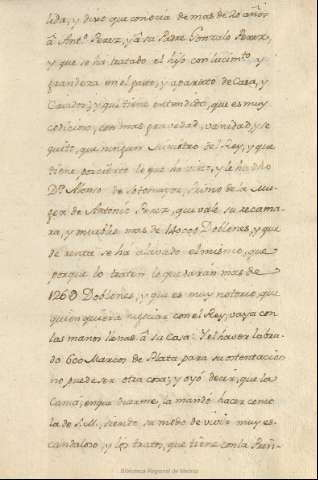 lida, y dixo que conocia de mas de 20 años
â Ant.º Perez, y â su Padre Gonzalo Perez,
y que se ha tratado el hijo con lucim.to y
grandeza en el gasto, y aparato de Casa, y
Criados; y que tiene entendido, que es muy
codicioso, con mas gravedad, vanidad, y se
quito, que ningun Ministro del Rey, y que
tiene por cierto lo que ha visto, y le ha dho
Dn. Alonso de Sotomayor, Primo de la Mu-
ger de Antonio Perez, que vale su recama-
ra, y muebles mas de 140000 Doblones, y que
de renta se hâ alavado el mismo, que
porque lo traten le quedaràn mas de
Doblones, y que es muy notorio, que
quien quiera negociar con el Rey, vaya con
las manos llenas â su Casa: Y el haver labra-
do 600 Marcos de Plata para su ostentacion
no puede ser otra cosa; y oyó decir, que la
Cama, en que duerme, la mandó hacer como
la de S.M., siendo su modo de vivir muy es-
candaloso, y los tratos, que tiene con la Prin-
Biblioteca Regional de Madrid